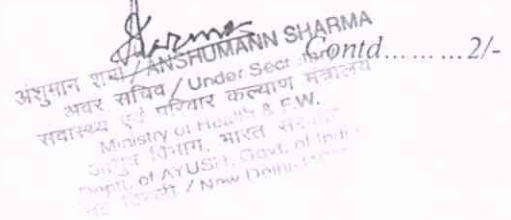 Sharma
Contd.........2/-
अंशुमान शर्मा / ANSHUMANN SHARMA
अवर सचिव / Under Secretary
स्वास्थ्य एवं परिवार कल्याण मंत्रालय
Ministry of Health & F.W.
आयुष विभाग, भारत सरकार
Deptt. of AYUSH, Govt. of India
नई दिल्ली / New Delhi